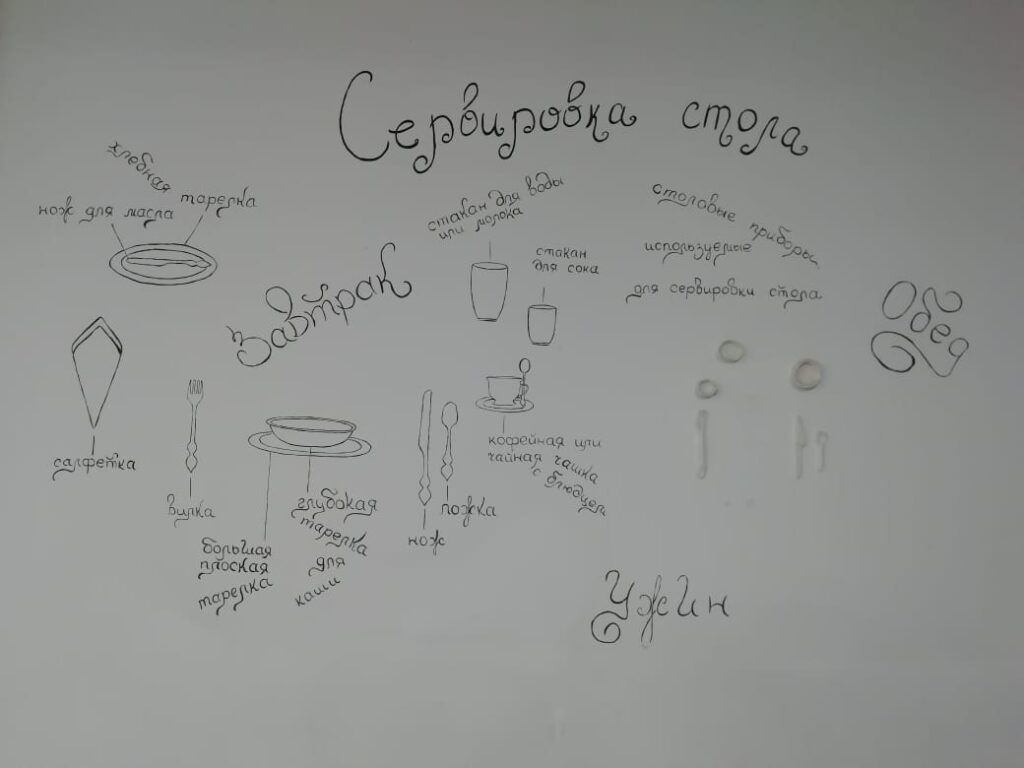 Сервировка стола
хлебная
тарелка
нож для масла
Завтрак
стакан для воды
или молока
стакан
для сока
столовые приборы,
используемые
для сервировки стола
Обед
салфетка
вилка
большая
плоская
тарелка
глубокая
тарелка
для
каши
нож
ложка
кофейная или
чайная чашка
с блюдцем
Ужин